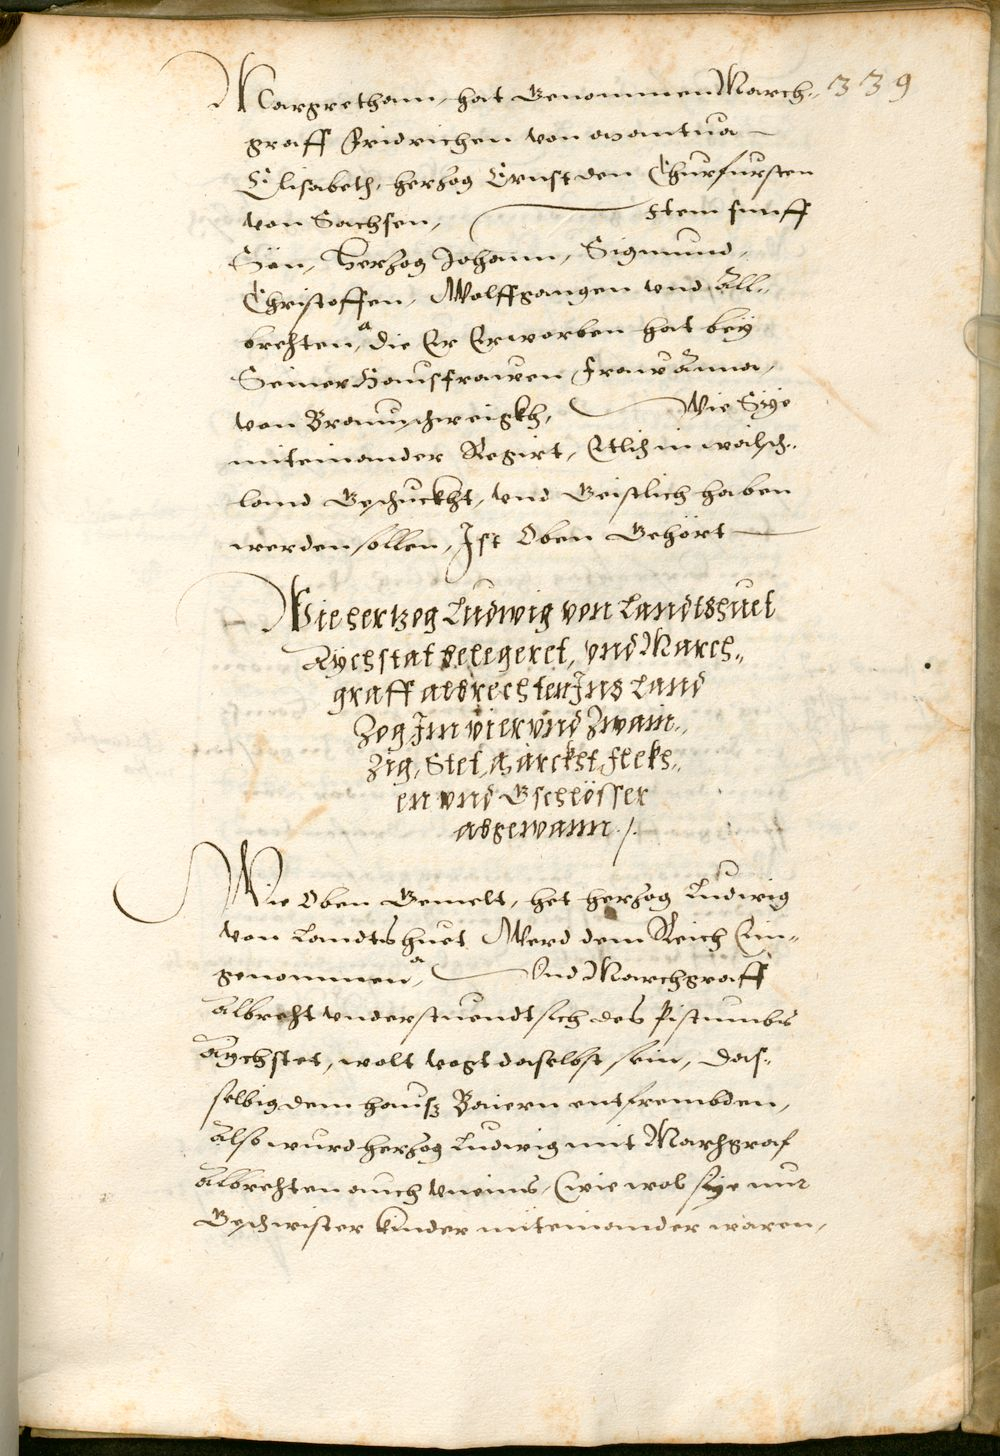 Margretham, hat Genommen March„ 339
graff Fridrichen von Mantua
Elisabeth, herzog Ernst den Churfursten
von Sachsen, Item funff
Sön, Herzog Johann, Sigmund,
Christoffen, Wolffgangen vnd All„
brehten, die Er Erworben hat beÿ
Seiner Hausfrawen, Fraw Anna,
von Braunschweigkh, Wie Sÿe
miteinander Regirt, Etlich in wälsch„
land Geschuckht, vnd Geistlich haben
werden sollen, Ist Oben Gehört
Wie hertzog Ludwig von Landtshuet
Aÿchstat belegeret, vnd March„
graff albrechten Ins Land
Zog Im vier vnd Zwain„
Zig, Stet, Märckht, Fleckh„
en vnd Gschlösser
abgewann ./.
Wie Oben Gemelt, het herzog Ludwig
von Landtshuet Werd dem Reich Ein„
genommen, Vnd Marchgraff
Albreht vnderstuendt sich des Pistumbs
Aÿchstet, wolt vogt daselbst sein, das„
selbig dem hausz Baiern entfrembden,
Also wurd herzog Ludwig mit Marhgraf
Albrehten auch vneins, (wie wol sÿe nur
Geschwister kinder miteinander waren,